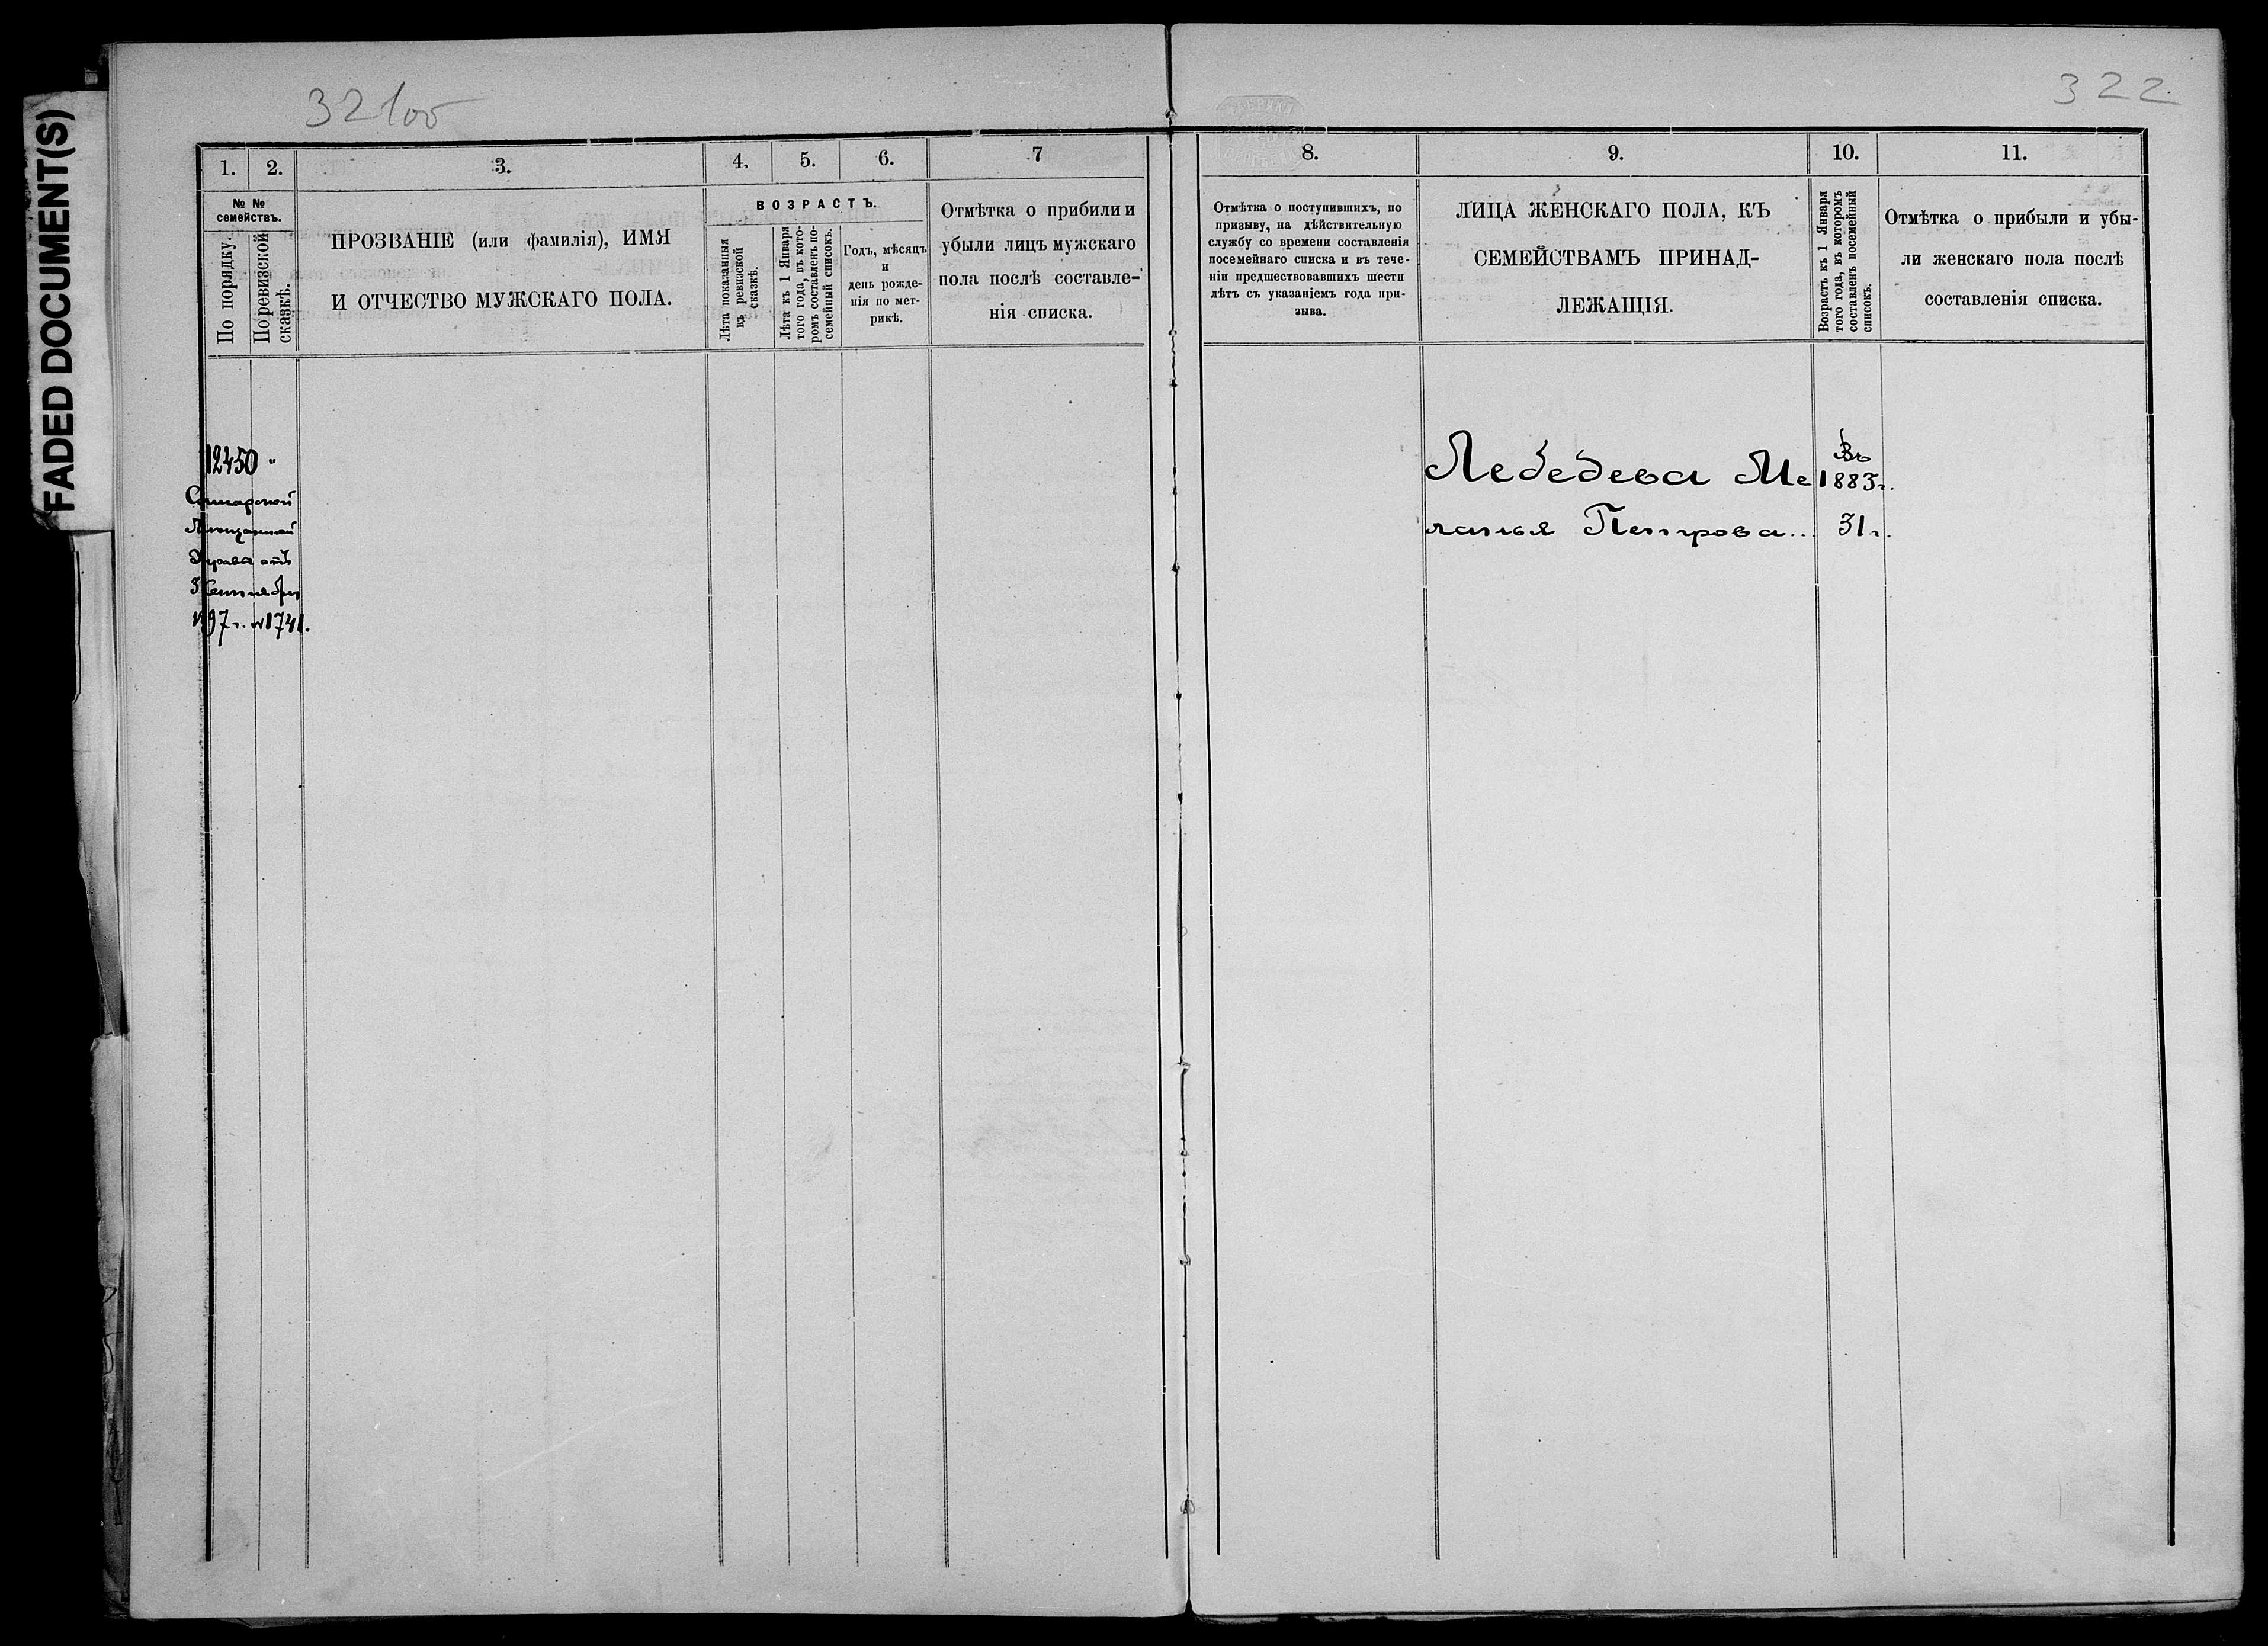 FADED DOCUMENT(S)
321об
322
1.
2.
3.
4.
5.
6.
7
№ №
семействъ.
По порядку.
По ревизской
сказкѣ.
ПРОЗВАНІЕ (или фамилія), ИМЯ
И ОТЧЕСТВО МУЖСКАГО ПОЛА.
ВОЗРАСТЪ.
Лѣта показанныя
въ ревизской
сказкѣ.
Лѣта къ 1 Января
того года, въ кото-
ромъ составленъ по-
семейный списокъ.
Годъ, мѣсяцъ
и
день рожде-
нія по мет-
рикѣ.
Отмѣтка о прибили и
убыли лицъ мужскаго
пола послѣ составле-
нія списка.
12450 "
Самарской
Мѣщанской
Управы отъ
3 Сентября
1897г. № 1741.
8.
9.
10.
11.
Отмѣтка о поступившихъ, по
призыву, на дѣйствительную
службу со времени составленія
посемейнаго списка и въ тече-
ніи предшествовавшихъ шести
лѣтъ съ указаніемъ года при-
зыва.
ЛИЦА ЖЕНСКАГО ПОЛА, КЪ
СЕМЕЙСТВАМЪ ПРИНАД-
ЛЕЖАЩІЯ.
Возрастъ къ 1 Января
того года, въ которомъ
составленъ посемейный
списокъ.
Отмѣтка о прибыли и убы-
ли женскаго пола послѣ
составленія списка.
Лебедева Ме
ланья Петрова...
Въ
1883г.
31г.